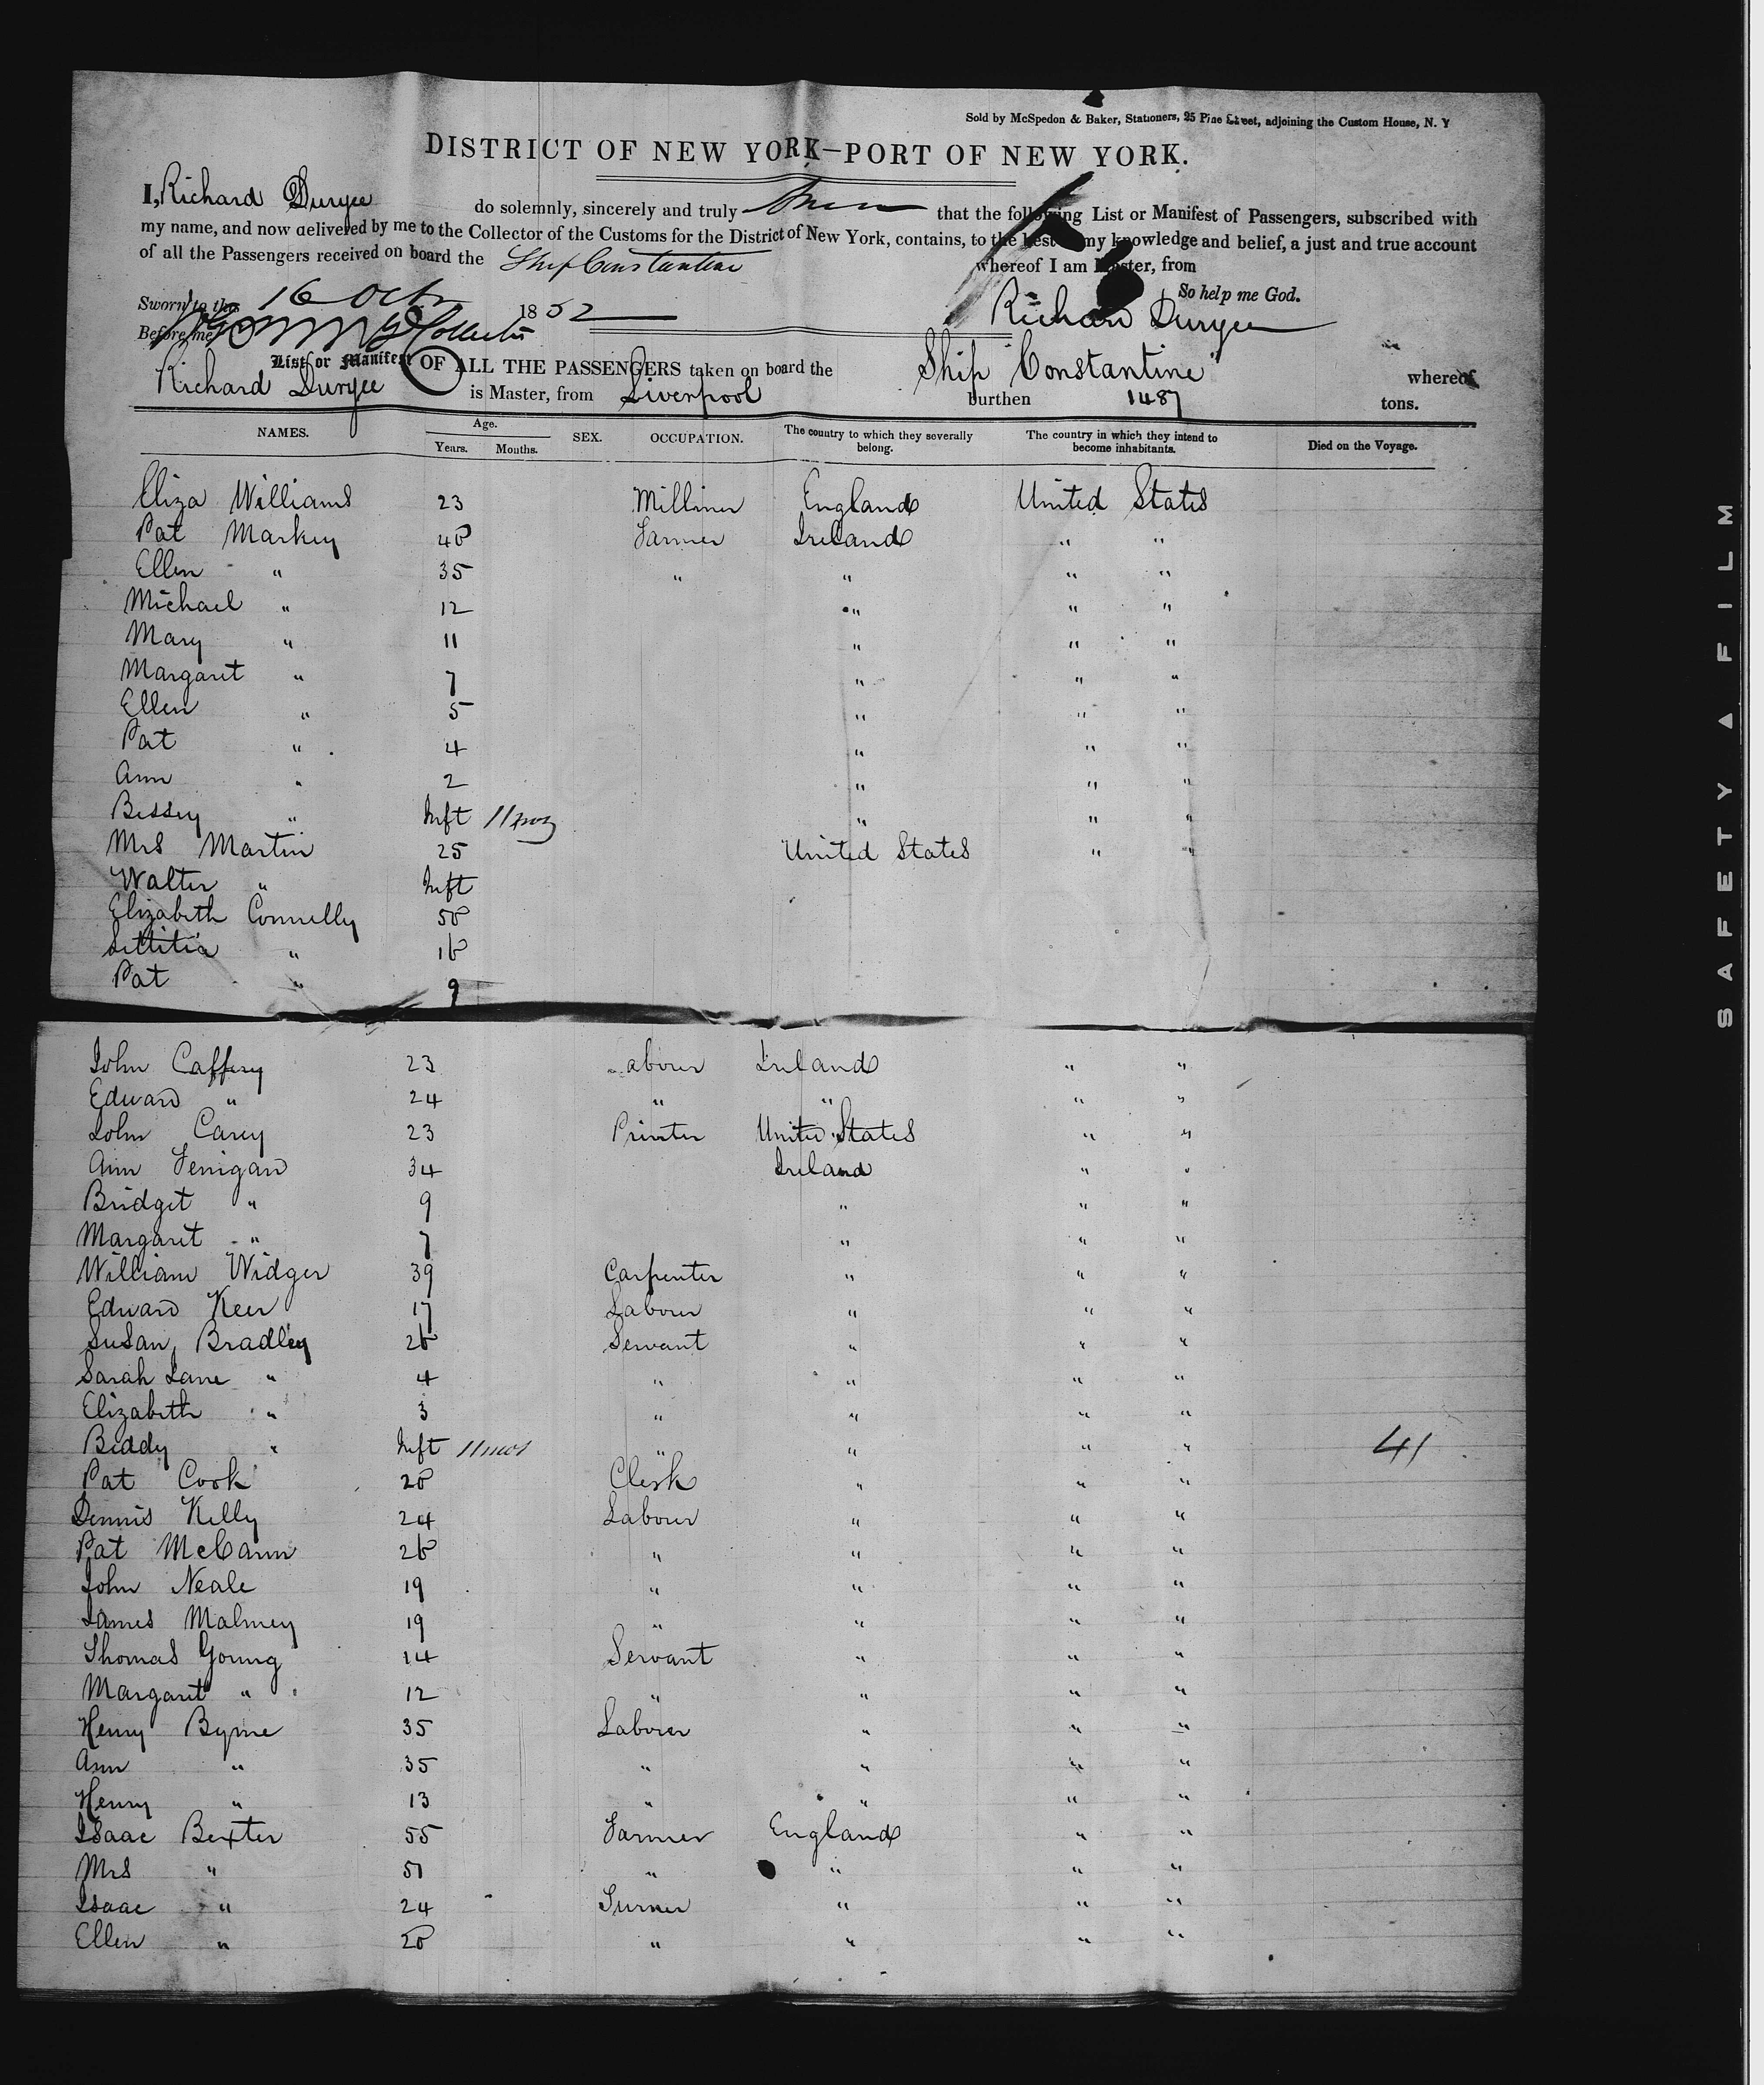 Sold by McSpedon & Baker, Stationers, 25 Pine Street, adjoining the Custom House, N. Y
DISTRICT OF NEW YORK—PORT OF NEW YORK.
I, Richard Duryee do solemnly, sincerely and truly that the following List or Manifest of Passengers, subscribed with
my name, and now delivered by me to the Collector of the Customs for the District of New York, contains, to the best of my knowledge and belief, a just and true account
of all the Passengers received on board the Ship Constantine whereof I am Master, from
So help me God.
Sworn to this 16 Oct 1852
Richard Duryee
Before me, Collector
List or Manifest OF ALL THE PASSENGERS taken on board the Ship Constantine whereof
Richard Duryee is Master, from Liverpool burthen 1487 tons.
NAMES. Age. Years. Mouths. SEX. OCCUPATION. The country to which they severally belong. The country in which they intend to become inhabitants. Died on the Voyage.
Eliza Williams 23 Milliner England United States
Pat Markey 40 Farmer Ireland " "
Ellen " 35 " " " "
Michael " 12 " " "
Mary " 11 " " "
Margaret " 7 " " "
Ellen " 5 " " "
Pat " 4 " " "
Ann " 2 " " "
Bessey " Inft 11 mos " " "
Mrs Martin 25 United States " "
Walter " Inft
Elizabeth Connelly 50
Lettitia " 16
Pat " 9
John Caffery 23 Labour Ireland " "
Edward " 24 " " " "
John Carey 23 Printer United States " "
Ann Fenigan 34 Ireland " "
Bridget " 9 " " "
Margaret " 7 " " "
William Widger 39 Carpenter " " "
Edward Keer 17 Labour " " "
Susan Bradley 26 Servant " " "
Sarah Jane " 4 " " " "
Elizabeth " 3 " " " "
Biddy " Inft 11 mos " " " " 41
Pat Cook 20 Clerk " " "
Dennis Kelly 24 Labour " " "
Pat McCann 26 " " " "
John Neale 19 " " " "
James Malmey 19 " " " "
Thomas Young 14 Servant " " "
Margaret " 12 " " " "
Henry Byrne 35 Labour " " "
Ann " 35 " " " "
Henry " 13 " " " "
Isaac Bexter 55 Farmer England " "
Mrs " 51 " " " "
Isaac " 24 Turner " " "
Ellen " 20 " " " "
SAFETY ▲ FILM